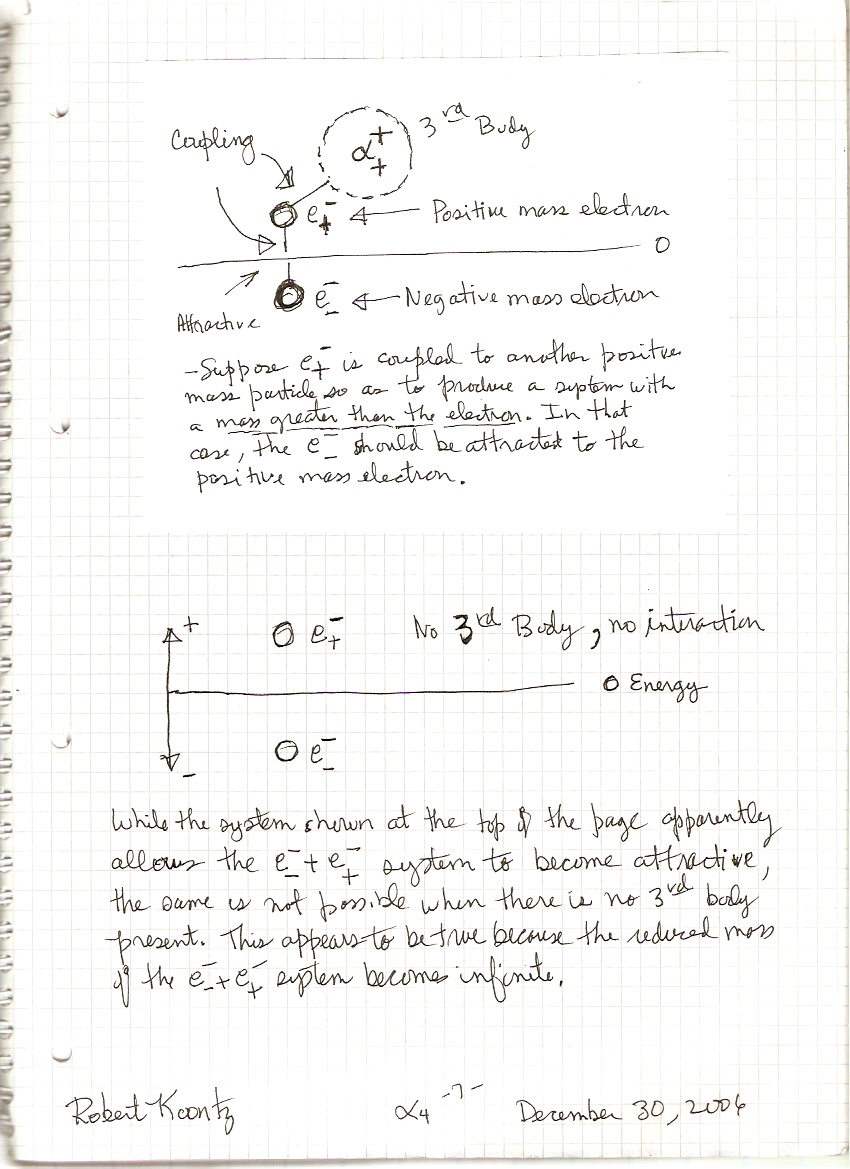 Coupling
3rd Body
α++
e+- Positive mass electron
0
e-- Negative mass electron
Attractive
-Suppose e+- is coupled to another positive
mass particle so as to produce a system with
a mass greater than the electron. In that
case, the e-- should be attracted to the
positive mass electron.
+
e+- No 3rd Body, no interaction
0 Energy
e--
-
While the system shown at the top of the page apparently
allows the e-- + e+- system to become attractive,
the same is not possible when there is no 3rd body
present. This appears to be true because the reduced mass
of the e-- + e+- system becomes infinite.
Robert Koontz α4 -7- December 30, 2006